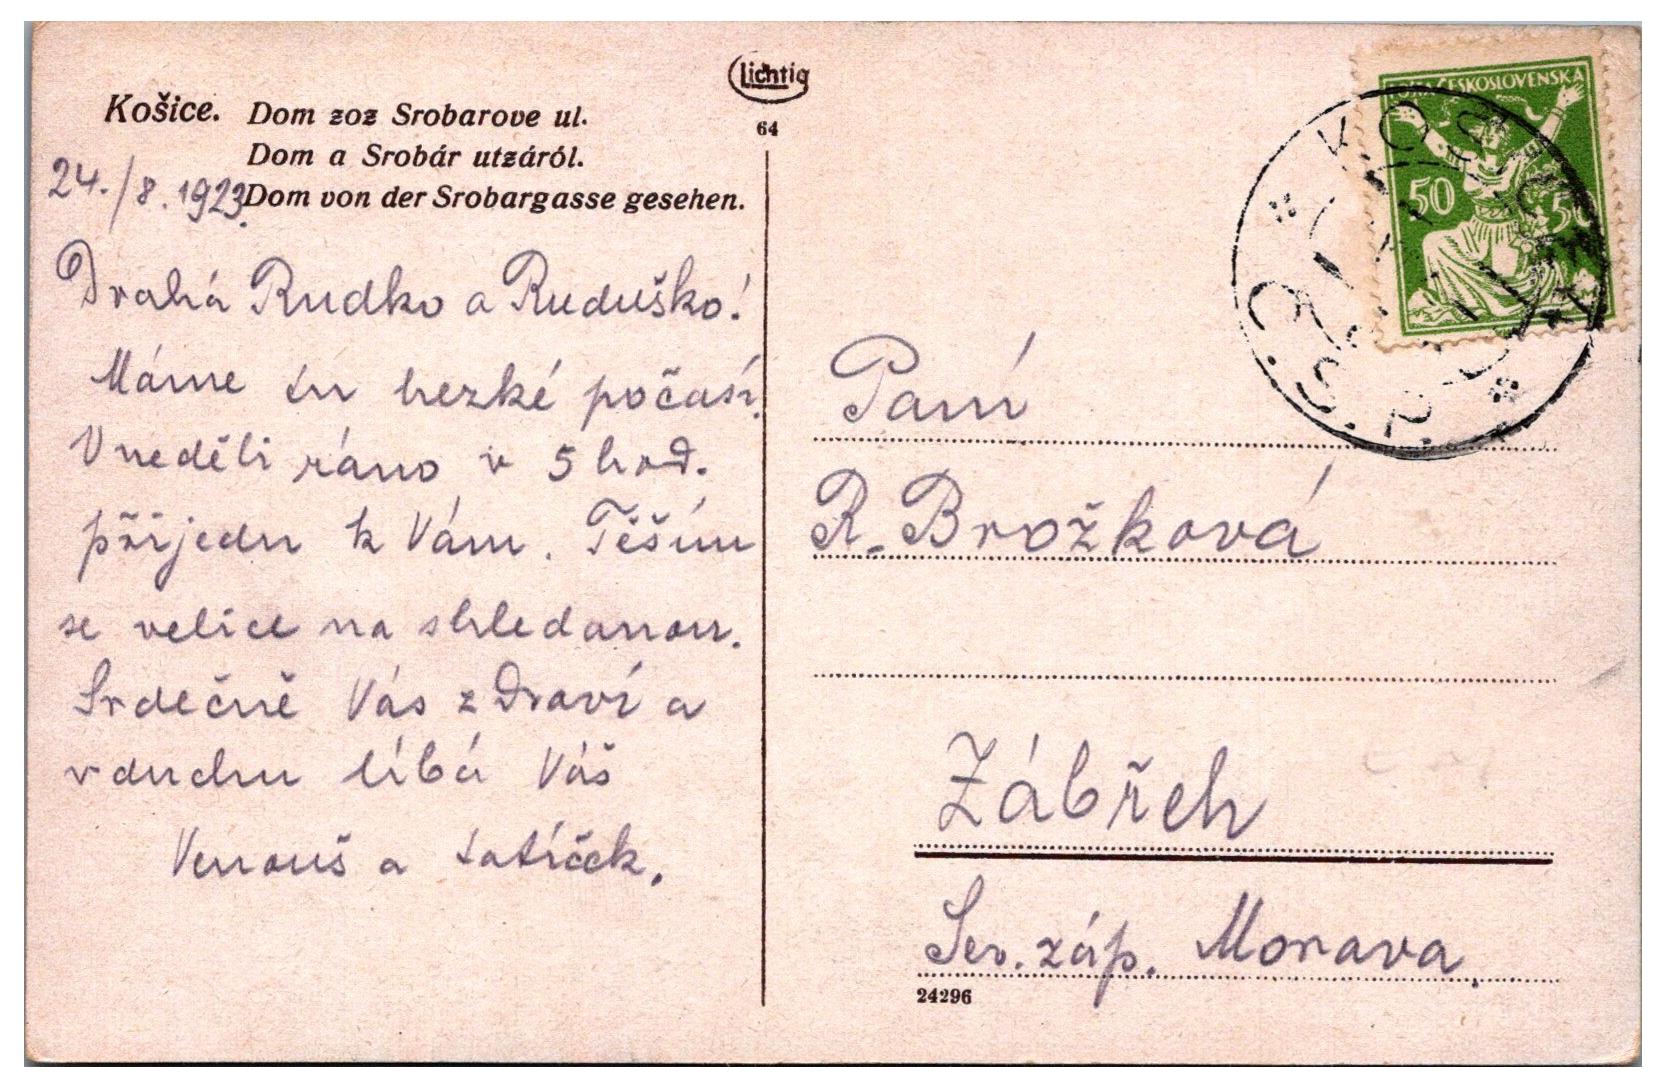 Lichtig
64
Košice. Dom zoz Srobarove ul.
Dom a Srobár utzáról.
Dom von der Srobargasse gesehen.
24./8. 1923.
Drahá Rudko a Ruduško!
Máme tu hezké počasí.
V neděli ráno v 5 hod.
přijedu k Vám. Těším
se velice na shledanou.
Srdečně Vás zdraví a
v duchu líbá Váš
Venouš a tatíček.
POŠTA ČESKOSLOVENSKÁ
50 50
KOŠICE
Č.S.P.
Paní
R. Brožková
Zábřeh
Sev. záp. Morava.
24296